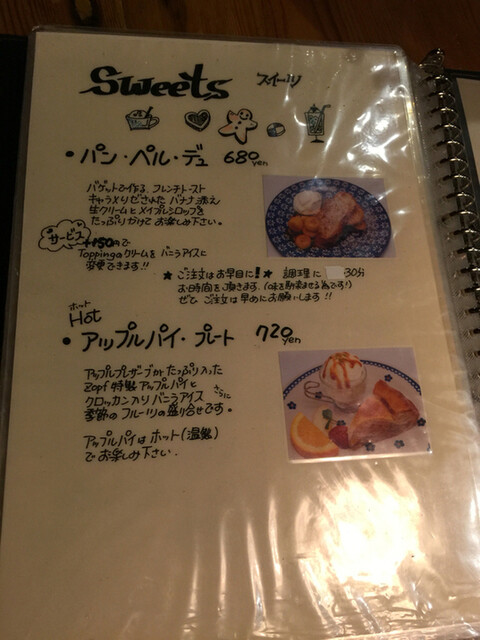 Sweets スイーツ
• パン・ペル・デュ 680yen
バゲットで作る、フレンチトースト
キャラメリゼされた バナナ添え
生クリームとメイプルシロップを
たっぷりかけて お楽しみ下さい。
サービス +150円で
Toppingのクリームを バニラアイスに
変更できます!!
★ ご注文はお早目に!★ 調理に 30分
お時間を頂きます、(味を馴染ませる為です!)
ぜひ ご注文は早めにお願いします!!
ホット
Hot
• アップルパイ・プレート 720yen
アッププレザーブが たっぷり入った
Zopf特製 アップルパイと
クロッカン入り バニラアイス さらに
季節の フルーツの盛り合せです。
アップルパイは ホット(温製)
でお楽しみ下さい.